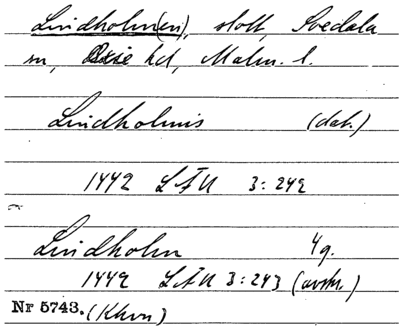 Lindholm(en), slott, Svedala
sn, Oxie hd, Malm. l.
Lindholmis (dat.)
1442 LÄU 3:242
Lindholm 4g.
1442 LÄU 3:243 (avskr.)
Nr 5743. (Khvn)